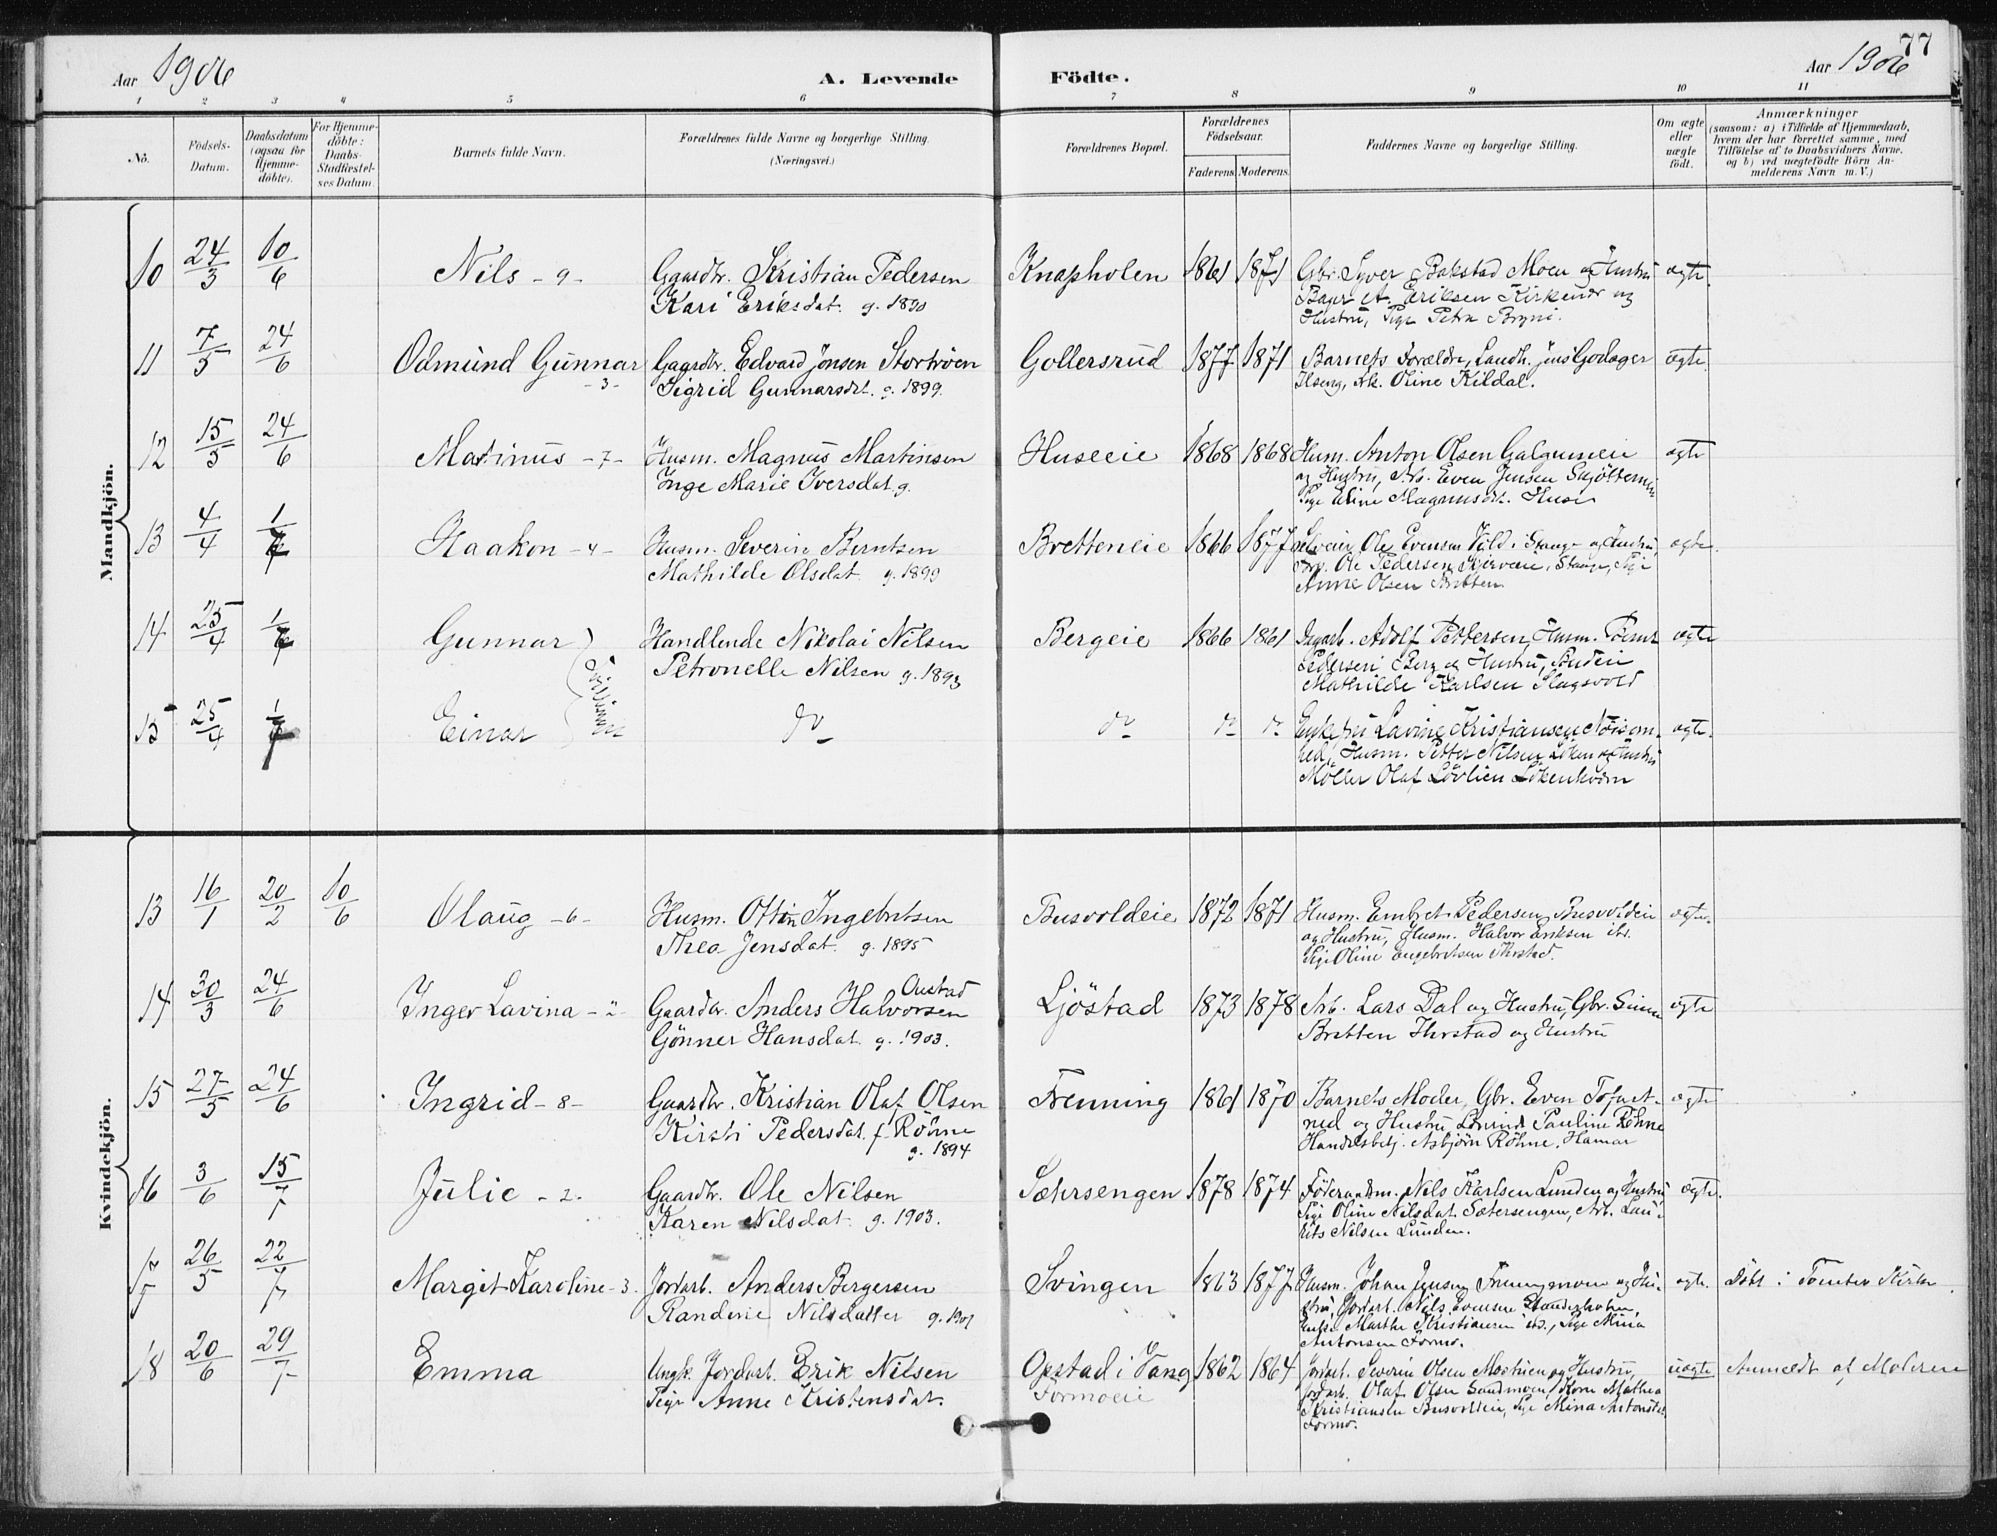 Aar 1906
A. Levende
Födte.
Aar 1906
77
1 2 3 4 5 6 7 8 9 10 11
Nö.
Födsels-
Datum.
Daabsdatum
(ogsaa for
Hjemme-
döbte).
For Hjemme-
döbte:
Daabs-
Stadfæstel-
ses Datum.
Barnets fulde Navn.
Forældrenes fulde Navne og borgerlige Stilling.
(Næringsvei.)
Forældrenes Bopæl.
Forældrenes
Födselsaar.
Faderens Moderens
Faddernes Navne og borgerlige Stilling.
Om ægte
eller
uægte
födt.
Anmærkninger
(saasom: a) i Tilfælde af Hjemmedaab,
hvem der har forrettet samme, med
Tilföielse af to Daabsvidners Navne.
og b) ved uægtefödte Börn An-
melderens Navn m. V.)
Mandkjön.
10 24/3 10/6 Nils - 9 - Gaardbr. Kristian Pedersen Knapholen 1861 1871 Gbr. Syver Bakstad Moen og Hustru ægte.
Kari Eriksdat. g. 1890 Bager A. Eriksen Kirkenær og
Hustru, Pige Petra Bryni.
11 7/5 24/6 Odmund Gunnar Gaardbr. Edvard Jonsen Stortröen Gollersrud 1877 1871 Barnets Forældre, Landh. Jens Godager ægte.
- 3 - Sigrid Gunnarsdt. g. 1899. Ilseng, Oline Kildal.
12 15/5 24/6 Martinus - 7 - Husm. Magnus Martinsen Huseeie 1868 1868 Husm. Anton Olsen Galgumeie ægte
Inge Marie Iversdat g. og Hustru, Arb. Even Jensen
Pige Eline Magnusdt. Huse
13 4/4 1/7 Haakon - 4 - Husm. Severin Berntsen Bretteneie 1866 1877 Selveier Ole Evensen Vold i Stange og Hustru, ægte.
Mathilde Olsdat g. 1899 Ole Pedersen Stange, Pige
Anne Olsen Bretten.
14 25/4 1/7 Gunnar Handlende Nikolai Nilsen Bergeie 1866 1861 Dagarb. Adolf Pettersen, Husm. ægte
Tvillinger
Petronelle Nilsen g. 1893 Pedersen Berg og Hustru, Budeie
Mathilde Karlsen Slagsvold
15 25/4 1/7 Einar do do do do Enkefru Lavine Kristiansen Nöisom- ægte.
hed, Husm. Petter Nilsen Löken og Hustru
Möller Olaf Lövlien Lökenkvern
Kvindekjön.
13 16/1 20/2 10/6 Olaug - 6 - Husm. Ottin Ingebritsen Busvoldeie 1872 1871 Husm. Embret Pedersen Busvoldeie ægte.
Thea Jensdat g. 1895 og Hustru, Husm. Halvor Eriksen ibd.
Pige Oline Engebretsen Thrstad.
14 30/3 24/6 Inger Lavina - 2 - Gaardbr. Anders Halvorsen Onstad Ljöstad 1873 1878 Arb. Lars Dal og Hustru, Gbr. Simen ægte
Gönner Hansdat g. 1903. Bretten Thrstad og Hustru
15 27/5 24/6 Ingrid - 8 - Gaardbr. Kristian Olaf Olsen Frenning 1861 1870 Barnets Moder, Gbr. Even Tofast- ægte
Kirsti Pedersdat f. Röhne rud og Hustru, Pauline Röhne
g. 1894 Handelsbetj. Asbjörn Röhne, Hamar
16 3/6 15/7 Julie - 2 - Gaardbr. Ole Nilsen Sætersengen 1878 1874 Föderaadsm. Nils Karlsen Lunden og Hustru ægte.
Karen Nilsdat g. 1903. Pige Oline Nilsdat Sætersengen, Arb. Lau-
rits Nilsen Lunden.
17 26/5 22/7 Margit Karoline - 3. Jordarb. Anders Bergersen Svingen 1863 1877 Husm. Johan Jensen og Hu- ægte. Döbt i Tomter Kirke.
Randine Nilsdatter g. 1901 stru, Jordarb. Nils Evensen
Enke Marthe Kristiansen ibd., Pige Mina
Antonsen Formo.
18 20/6 29/7 Emma Ungk. Jordarb. Erik Nilsen Opstad i Vang 1862 1864 Jordarb. Severin Olsen og Hustru, uægte Anmeldt af Moderen
Pige Anne Kristensdat. Formoeie Jordarb. Olaf Olsen Sandmoen, Kone Mathea
Kristiansen Busvoldeie, Pige Mina Antonsdt.
Formo.